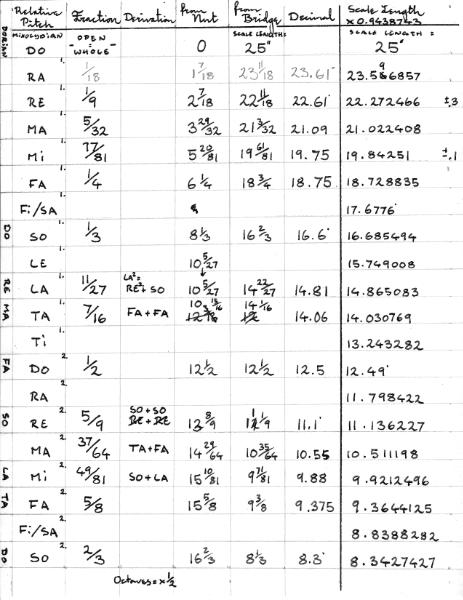 Relative Pitch Fraction Derivation from Nut from Bridge Decimal Scale Length x 0.9438743
DORIAN MIXOLYDIAN DO OPEN = "WHOLE" 0 SCALE LENGTH: 25" SCALE LENGTH: 25"
RA 1. 1/18 1 7/18 23 11/18 23.61˙ 23.596857
RE 1. 1/9 2 7/18 22 11/18 22.61˙ 22.272466 ±.3
MA 1. 5/32 3 29/32 21 3/32 21.09 21.022408
Mi 1. 17/81 5 20/81 19 61/81 19.75 19.84251 ±.1
FA 1. 1/4 6 1/4 18 3/4 18.75 18.728835
Fi/SA 1. 17.6776
DO SO 1. 1/3 8 1/3 16 2/3 16.6˙ 16.685494
LE 1. 10 5/27 15.749008
RE LA 1. 11/27 LA²= RE²+SO 10 5/27 14 22/27 14.81 14.865083
MA TA 1. 7/16 FA+FA 10 15/16 14 1/16 14.06 14.030769
Ti 1. 13.243282
FA DO 2. 1/2 12 1/2 12 1/2 12.5 12.49˙
RA 2. 11.798422
SO RE 2. 5/9 SO+SO RE+RE 13 8/9 11 1/9 11.1˙ 11.136227
MA 2. 37/64 TA+FA 14 29/64 10 35/64 10.55 10.511198
LA Mi 2. 49/81 SO+LA 15 10/81 9 71/81 9.88 9.9212496
TA FA 2. 5/8 15 5/8 9 3/8 9.375 9.3644125
Fi/SA 2. 8.8388282
DO SO 2. 2/3 16 2/3 8 1/3 8.3˙ 8.3427427
Octaves = x 1/2